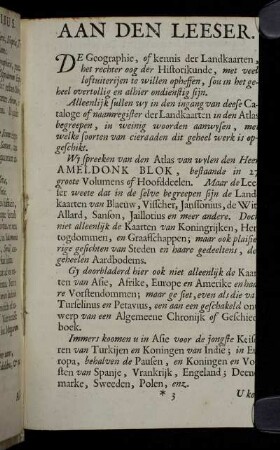 AAN DEN LEESER.
DE Geographie, of kennis der Landkaarten,
het rechter oog der Historikunde, met veel
loftuiterijen te willen opheffen, sou in het ge-
heel overtollig en alhier ondienstig sijn.
Alleenlijk sullen wy in den ingang van deese Ca-
taloge of naamregister der Landkaarten in den Atlas
begreepen, in weinig woorden aanwysen, met
welke soorten van cieraaden dit geheel werk is op-
geschikt.
Wy spreeken van den Atlas van wylen den Heer
AMELDONK BLOK, bestaande in 17
groote Volumens of Hoofddeelen. Maar de Lee
ser weete dat in de selve begreepen sijn de Land
kaarten van Blaeuw, Visscher, Janssonius, de Wit
Allard, Sanson, Jaillotius en meer andere. Doch
niet alleenlijk de Kaarten van Koningrijken, Her
togdommen, en Graafschappen; maar ook plaisie
rige gesichten van Steden en haare gedeeltens, de
geheelen Aardbodems.
Gy doorbladerd hier ook niet alleenlijk de Kaar
ten van Asie, Afrike, Europe en Amerike en haa
re Vorstendommen; maar ge siet, even als die va
Turselinus en Petavius, een aan een geschakeld on
werp van een Algemeene Chronijk of Geschied
boek.
Immers koomen u in Asie voor de jongste Keise
ren van Turkijen en Koningen van Indie; in E
ropa, behalven de Pausen, en Koningen en Vo
sten van Spanje, Vrankrijk, Engeland; Deene
marke, Sweeden, Polen, enz.
* 3